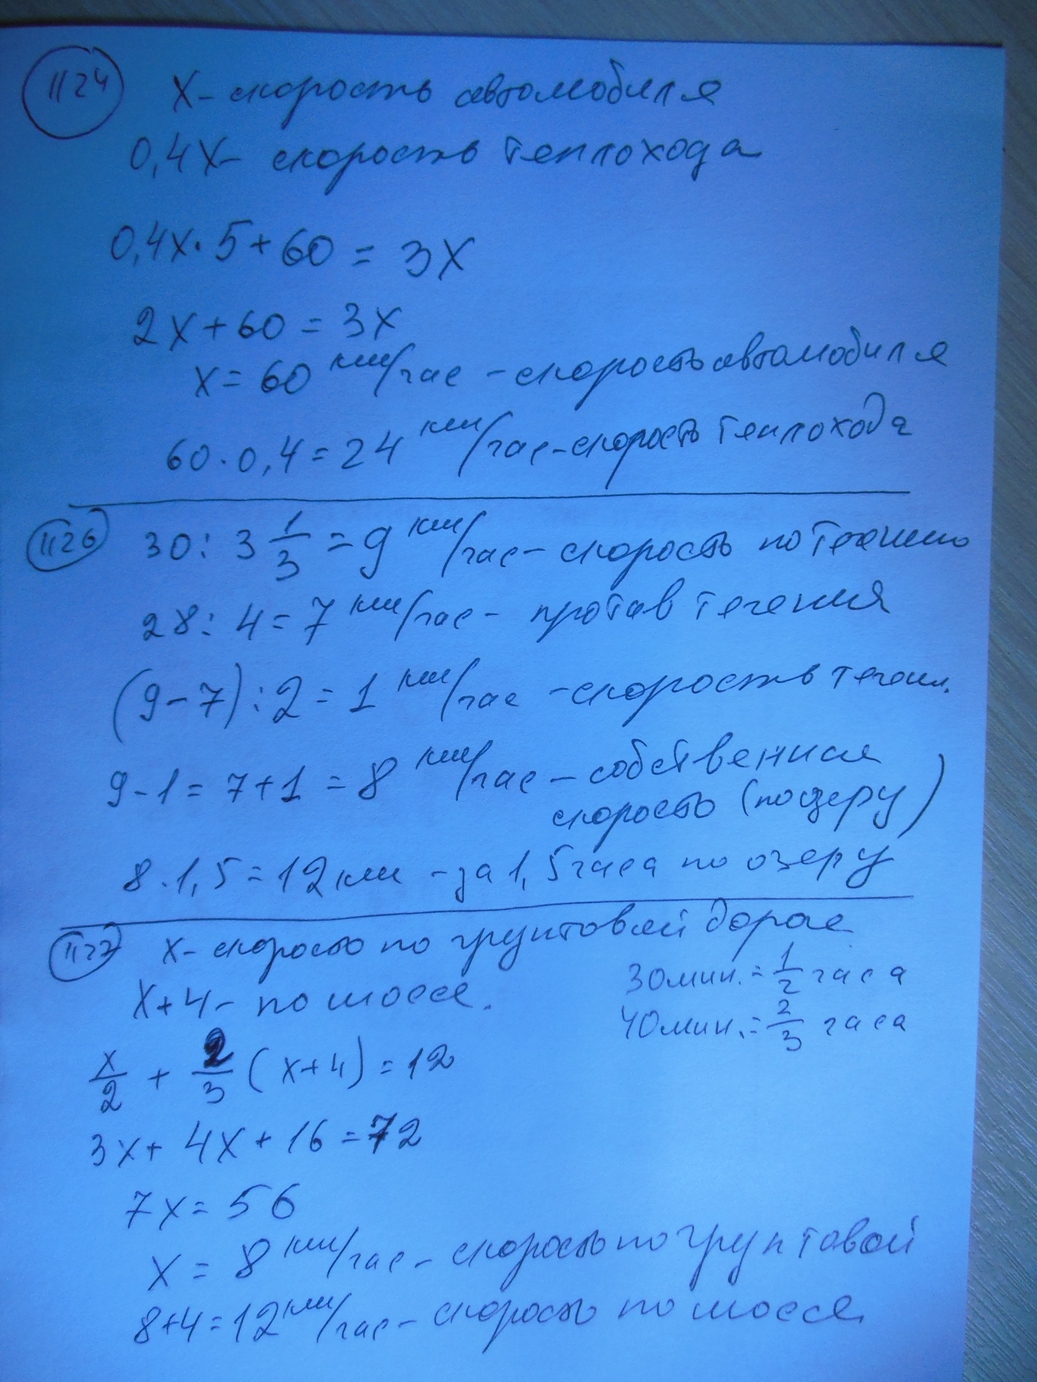 1124
X - скорость автомобиля
0,4X - скорость теплохода
0,4X · 5 + 60 = 3X
2X + 60 = 3X
X = 60 км/час - скорость автомобиля
60 · 0,4 = 24 км/час - скорость теплохода
1126
30 : 3 1/3 = 9 км/час - скорость по течению
28 : 4 = 7 км/час - против течения
(9 - 7) : 2 = 1 км/час - скорость течен.
9 - 1 = 7 + 1 = 8 км/час - собственная
скорость (по озеру)
8 · 1,5 = 12 км - за 1,5 часа по озеру
1127
X - скорость по грунтовой дороге
X + 4 - по шоссе.
30 мин. = 1/2 часа
40 мин. = 2/3 часа
X/2 + 2/3 (X + 4) = 12
3X + 4X + 16 = 72
7X = 56
X = 8 км/час - скорость по грунтовой
8 + 4 = 12 км/час - скорость по шоссе